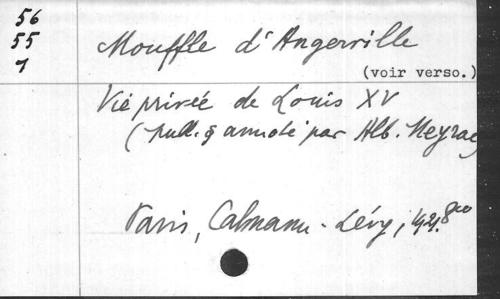 56
55
1
Mouffle d'Angerville
(voir verso.)
Vie privée de Louis XV
(publ. & annoté par Alb. Meyrac
Paris, Calmann-Lévy, 1921. 8vo